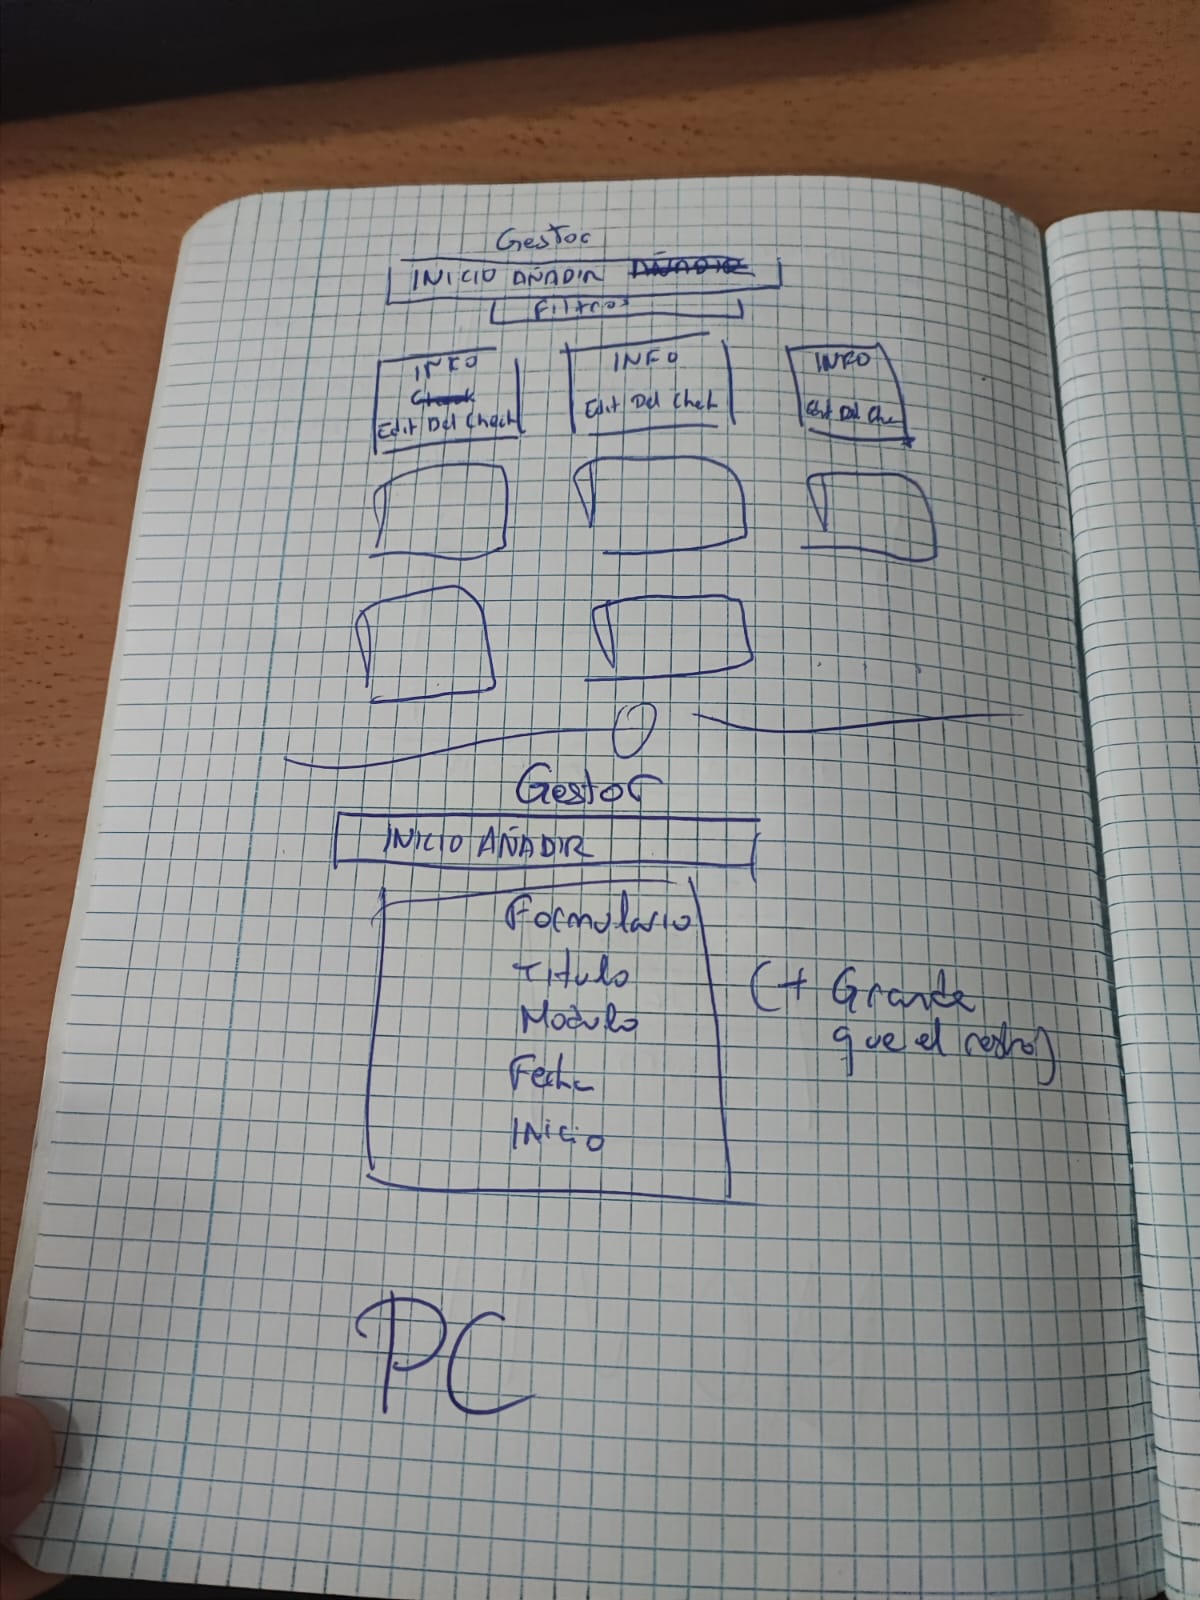 Gestor
INICIO AÑADIR AÑADIR
Filtros
INFO INFO INFO
Check
Edit Del Check Edit Del Chek Edit Del Che
Gestor
INICIO AÑADIR
Formulario
Titulo
Modulo
Fecha
Inicio
(+ Grande
que el resto)
PC